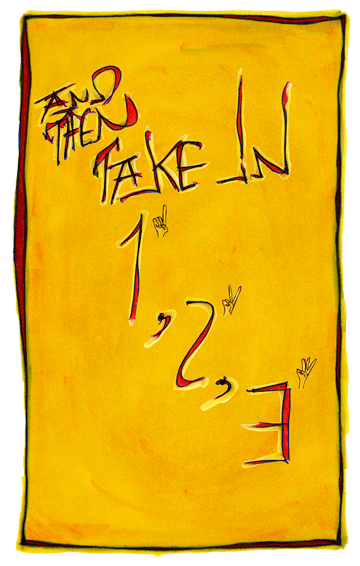 AND
THEN
TAKE IN
1
, 2
, 3